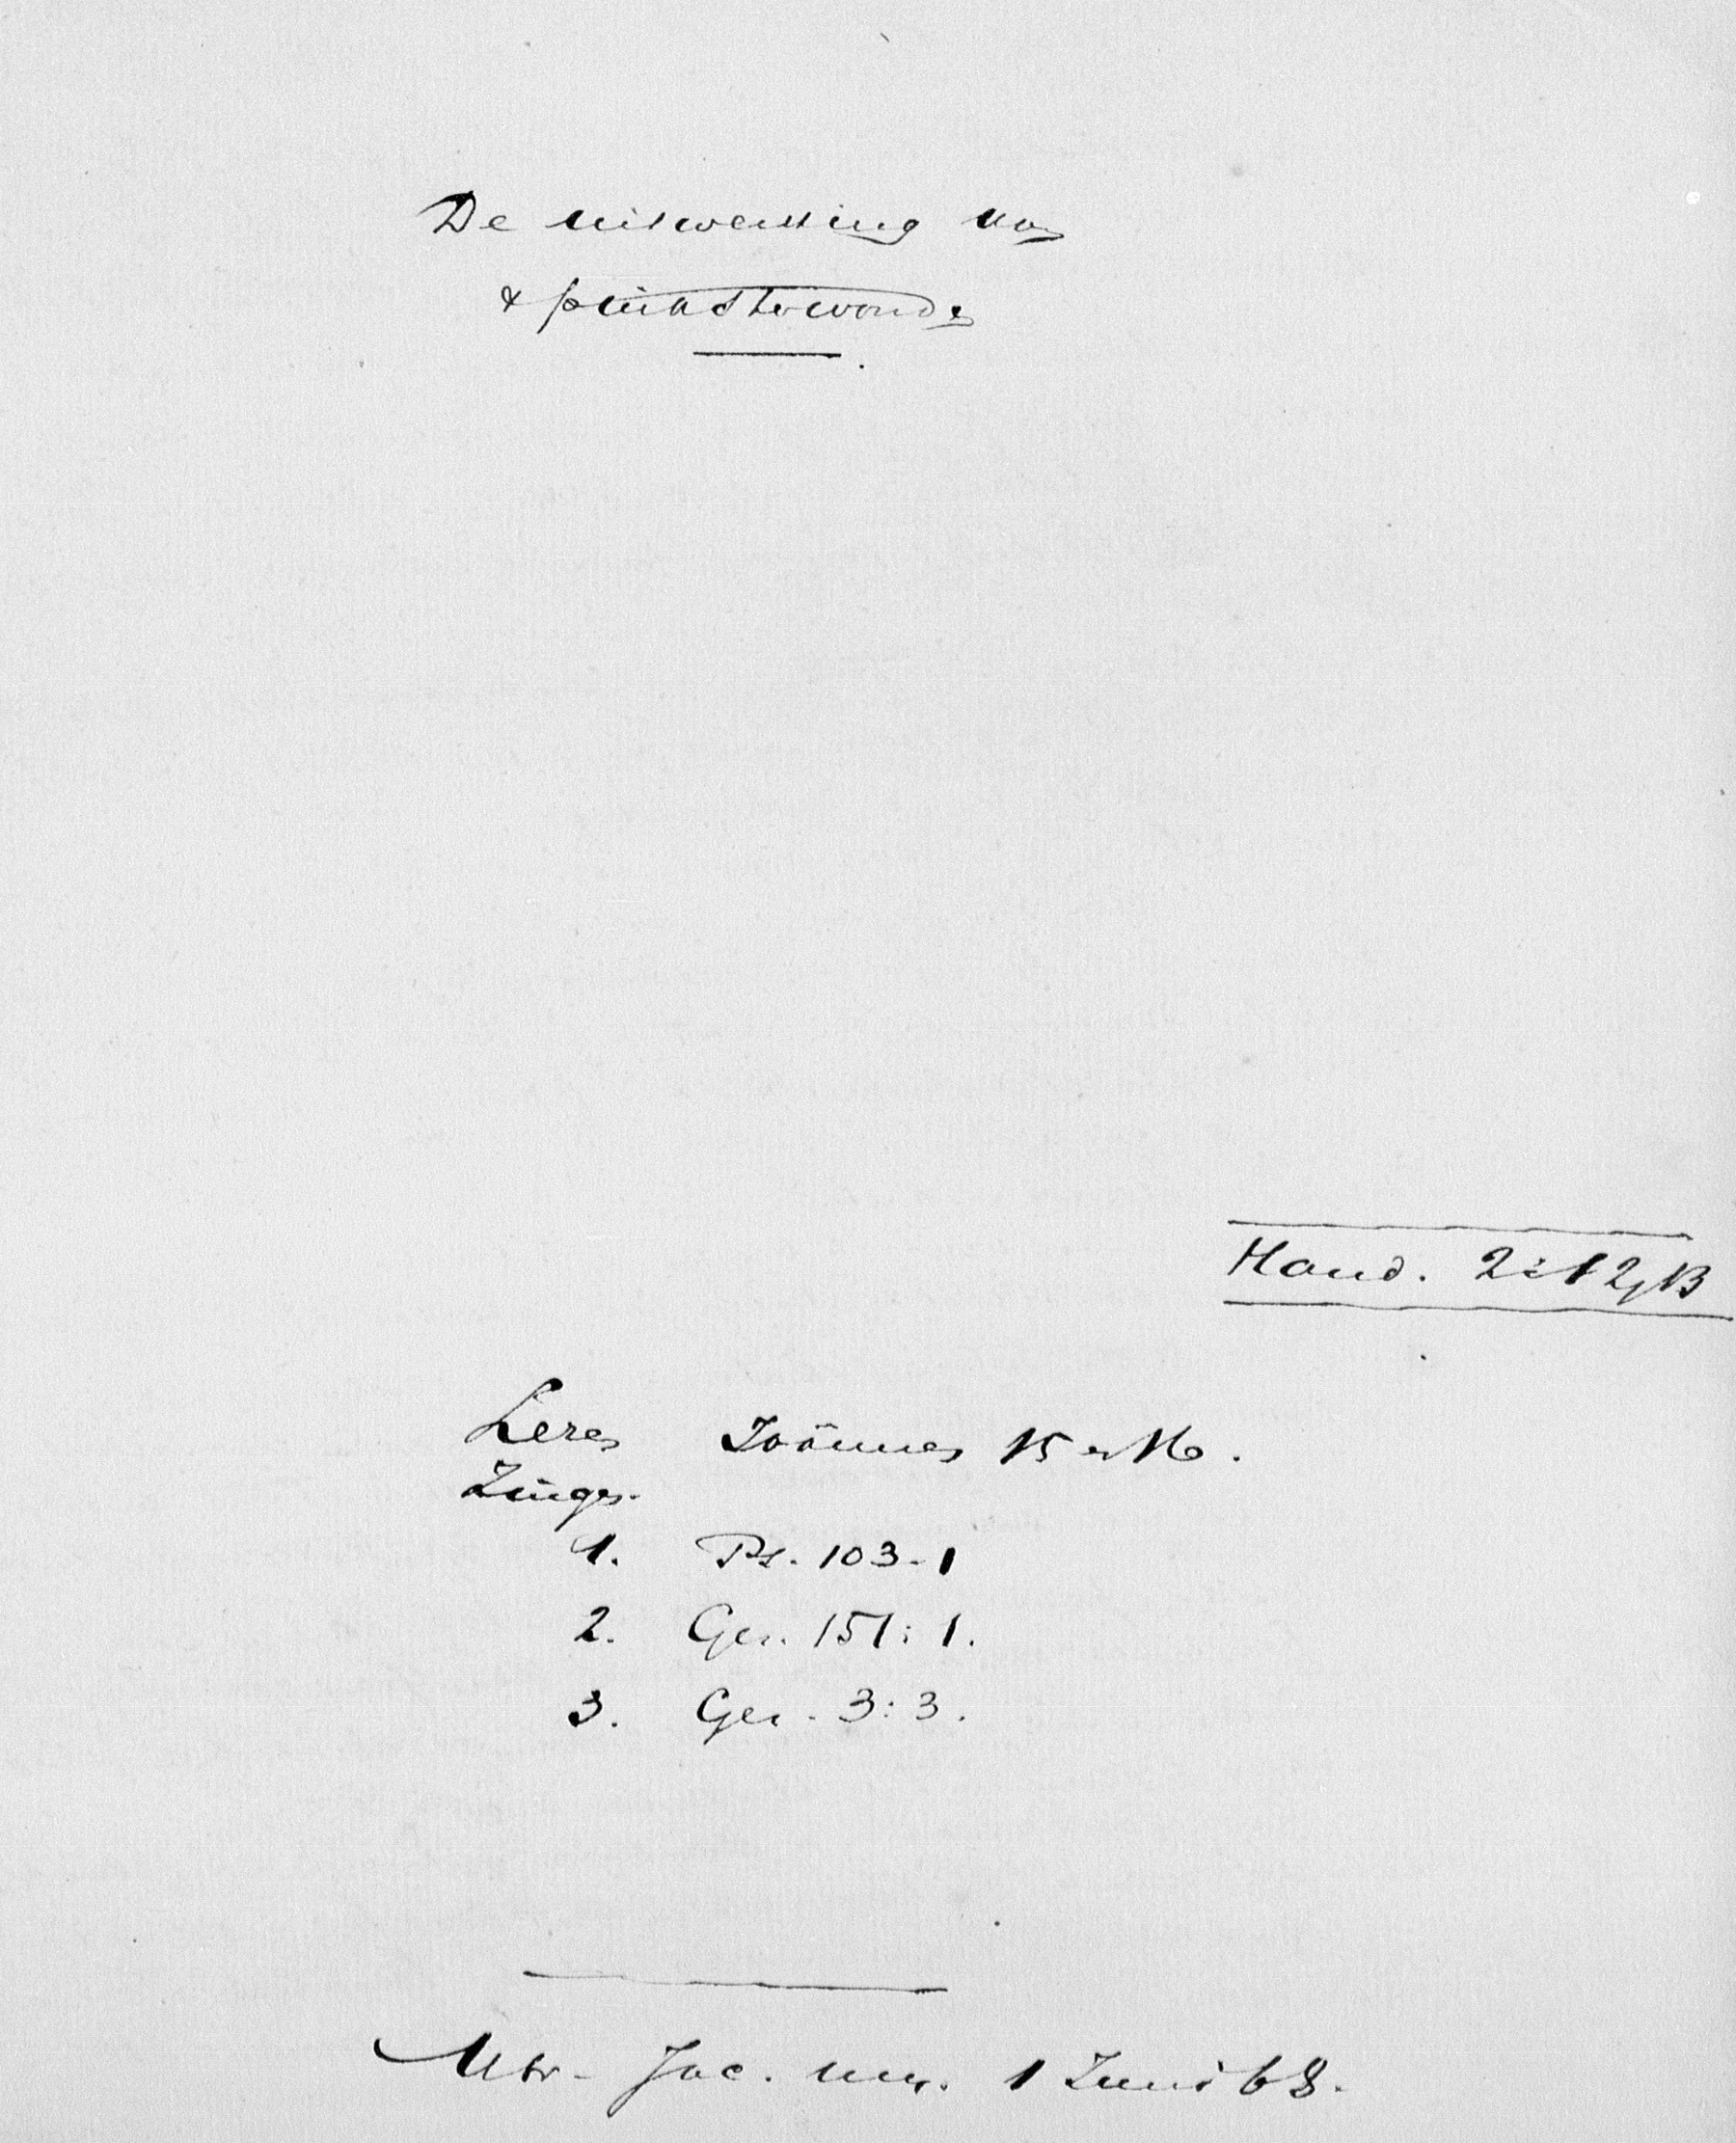 De uitwerking van
& pinksterwonder
Hand. 2:12,13
Lezen Joännes 15 en 16.
Zingen.
1. Ps. 103-1
2. Gez. 151:1.
3. Gez. 3:3.
Utr. Jac. 1 Juni 68.